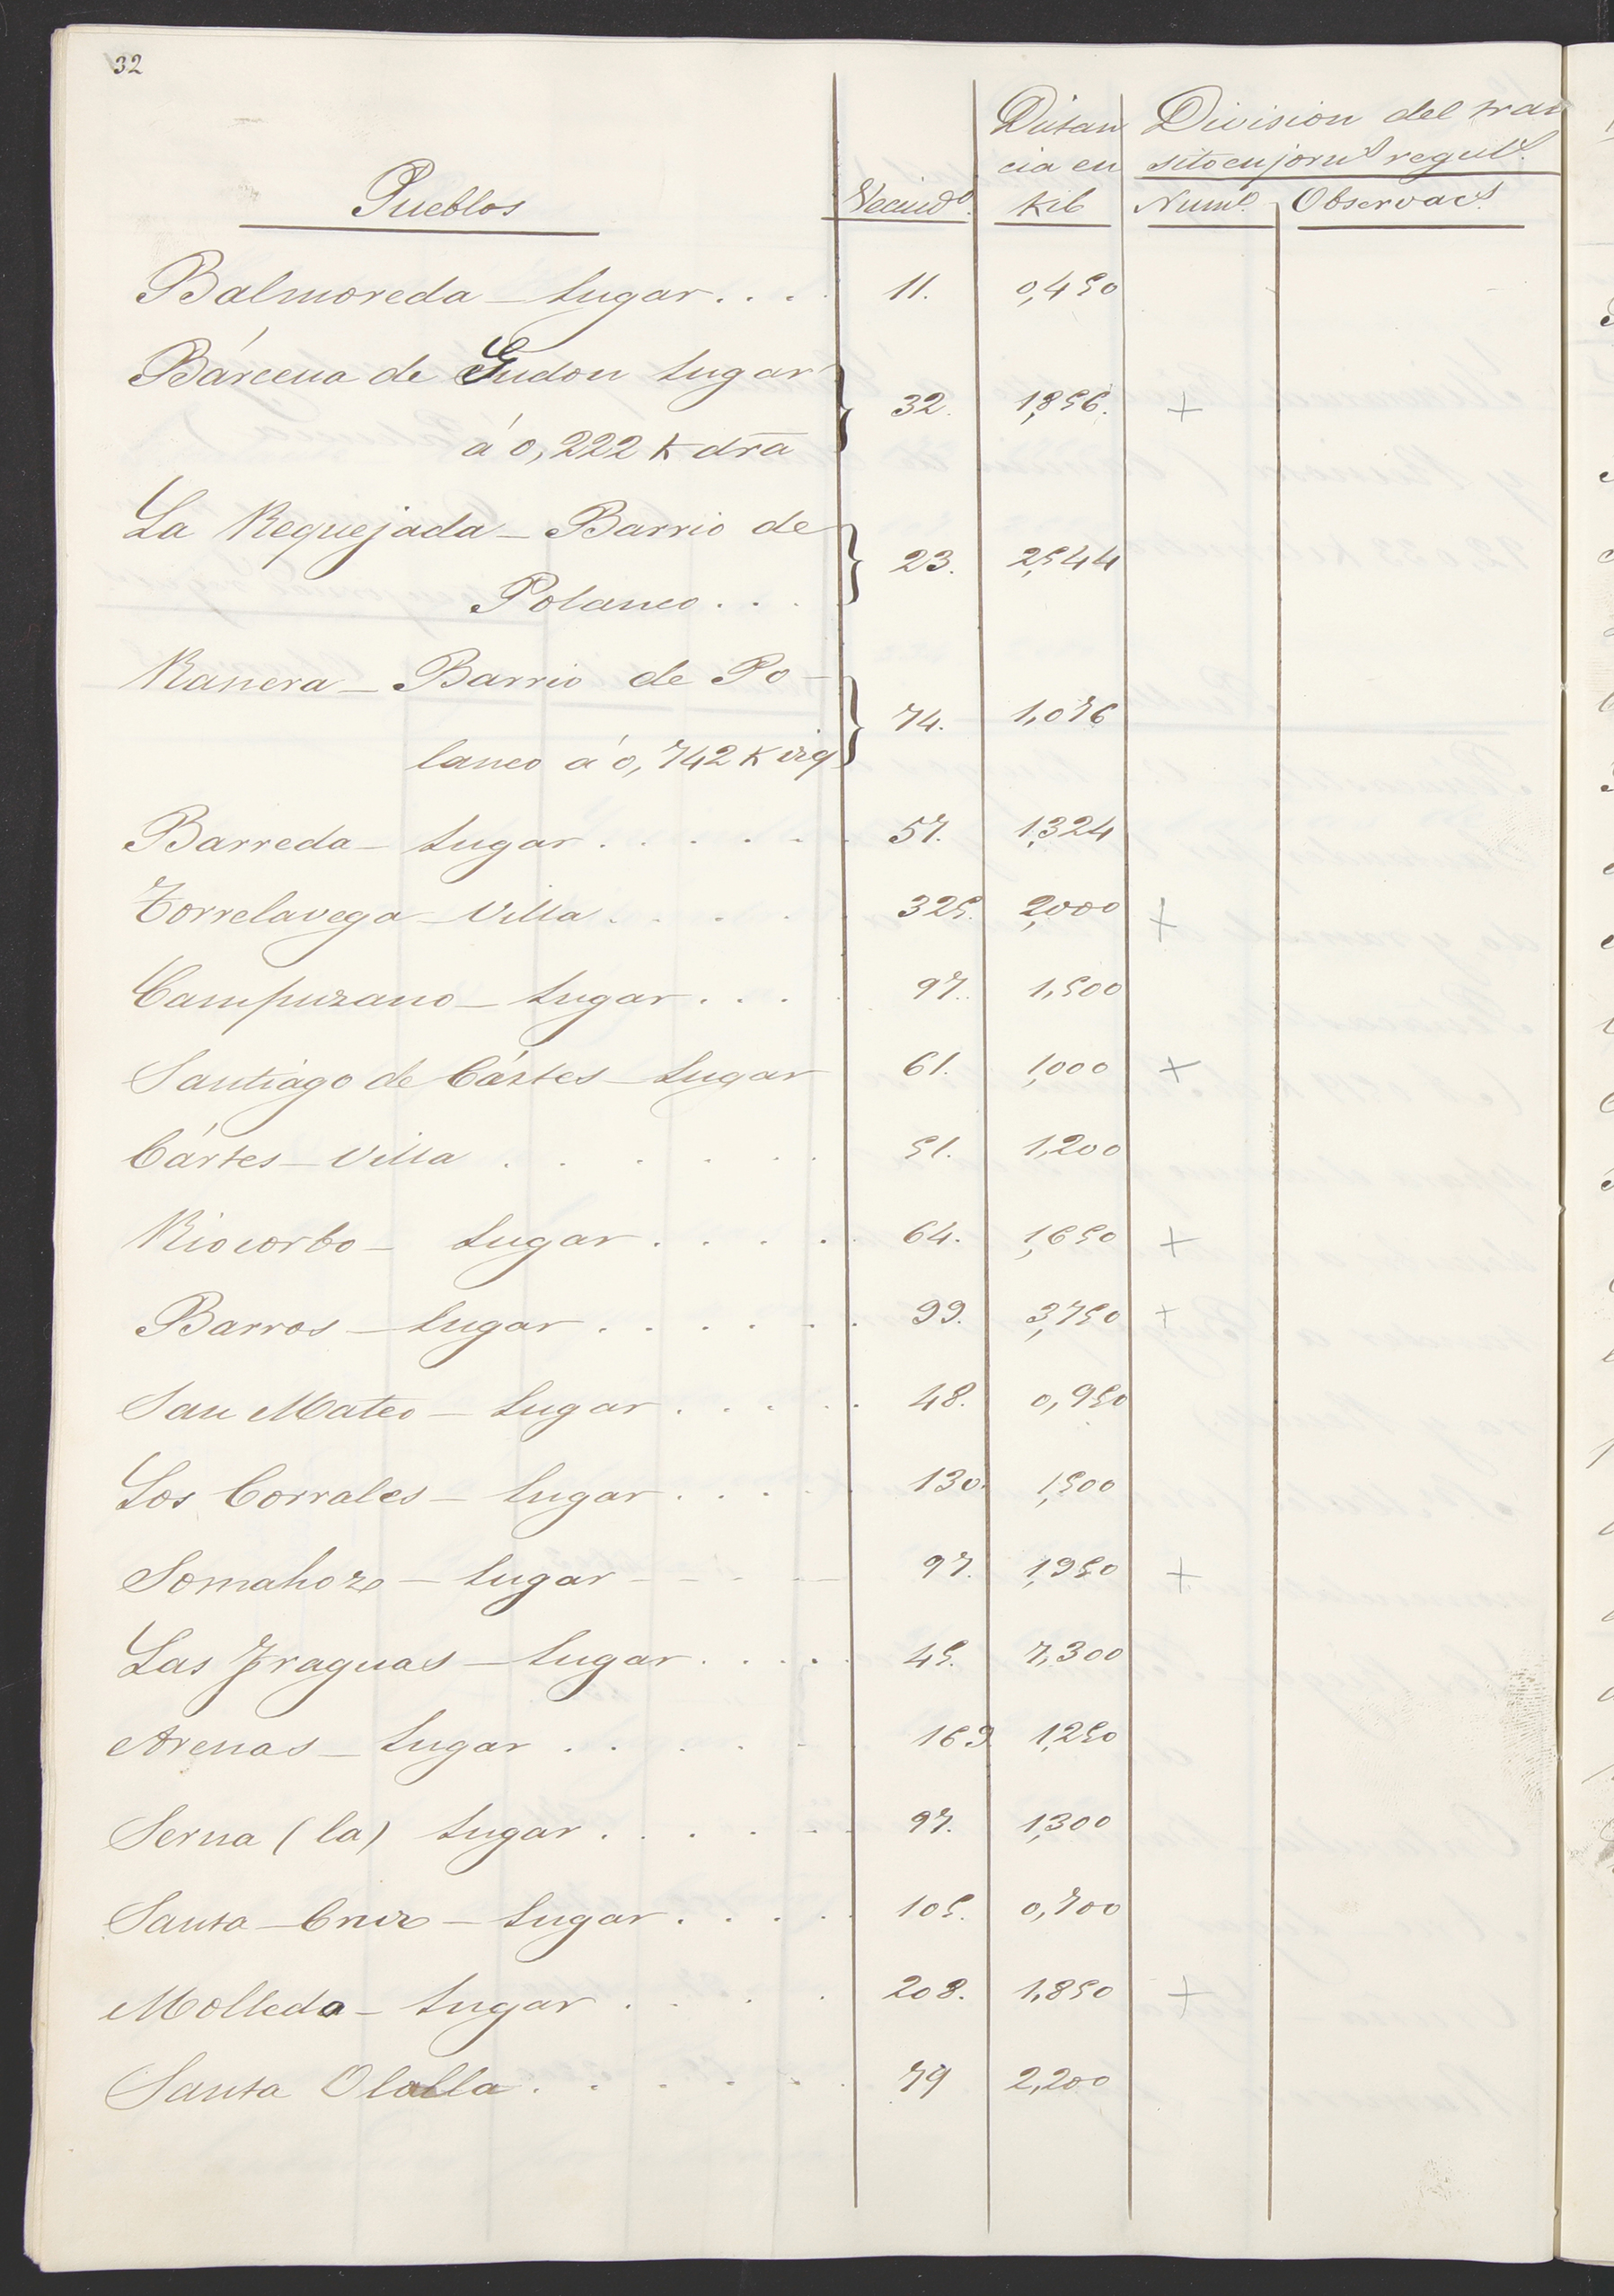 32
Pueblos Vecind.º Distan cia en kil Division del tran sito en jorn.s regul.s Num.º Observac.s
Balmoreda - Lugar . . . 11. 0,450
Bárcena de Gudon Lugar
á 0,222 K dra 32. 1,856. +
La Requejada - Barrio de
Polanco . . . 23. 2,544
Ranera - Barrio de Po-
lanco á 0,742 K izq 74. 1,076
Barreda - Lugar . . . . . . 57. 1,324
Torrelavega - Villa . . . . 325. 2,000 +
Campuzano - Lugar . . . . 97. 1,500
Santiago de Cártes - Lugar 61. 1,000 +
Cártes - Villa . . . . . . 51. 1,200
Riocorbo - Lugar . . . . . 64. 1,650 +
Barros - Lugar . . . . . . 99. 3,750 +
San Mateo - Lugar . . . . . 48. 0,950
Los Corrales - Lugar . . . . 130. 1,500
Somahozo - Lugar - - - - 97. 1,950 +
Las Fraguas - Lugar . . . . 45. 7,300
Arenas - Lugar . . . . . 169 1,250
Serna (la) Lugar . . . . . . 97. 1,300
Santa - Cruz - Lugar . . . . . 105. 0,700
Molledo - Lugar . . . . 208. 1,850 +
Santa Olalla . . . . . . 79 2,200